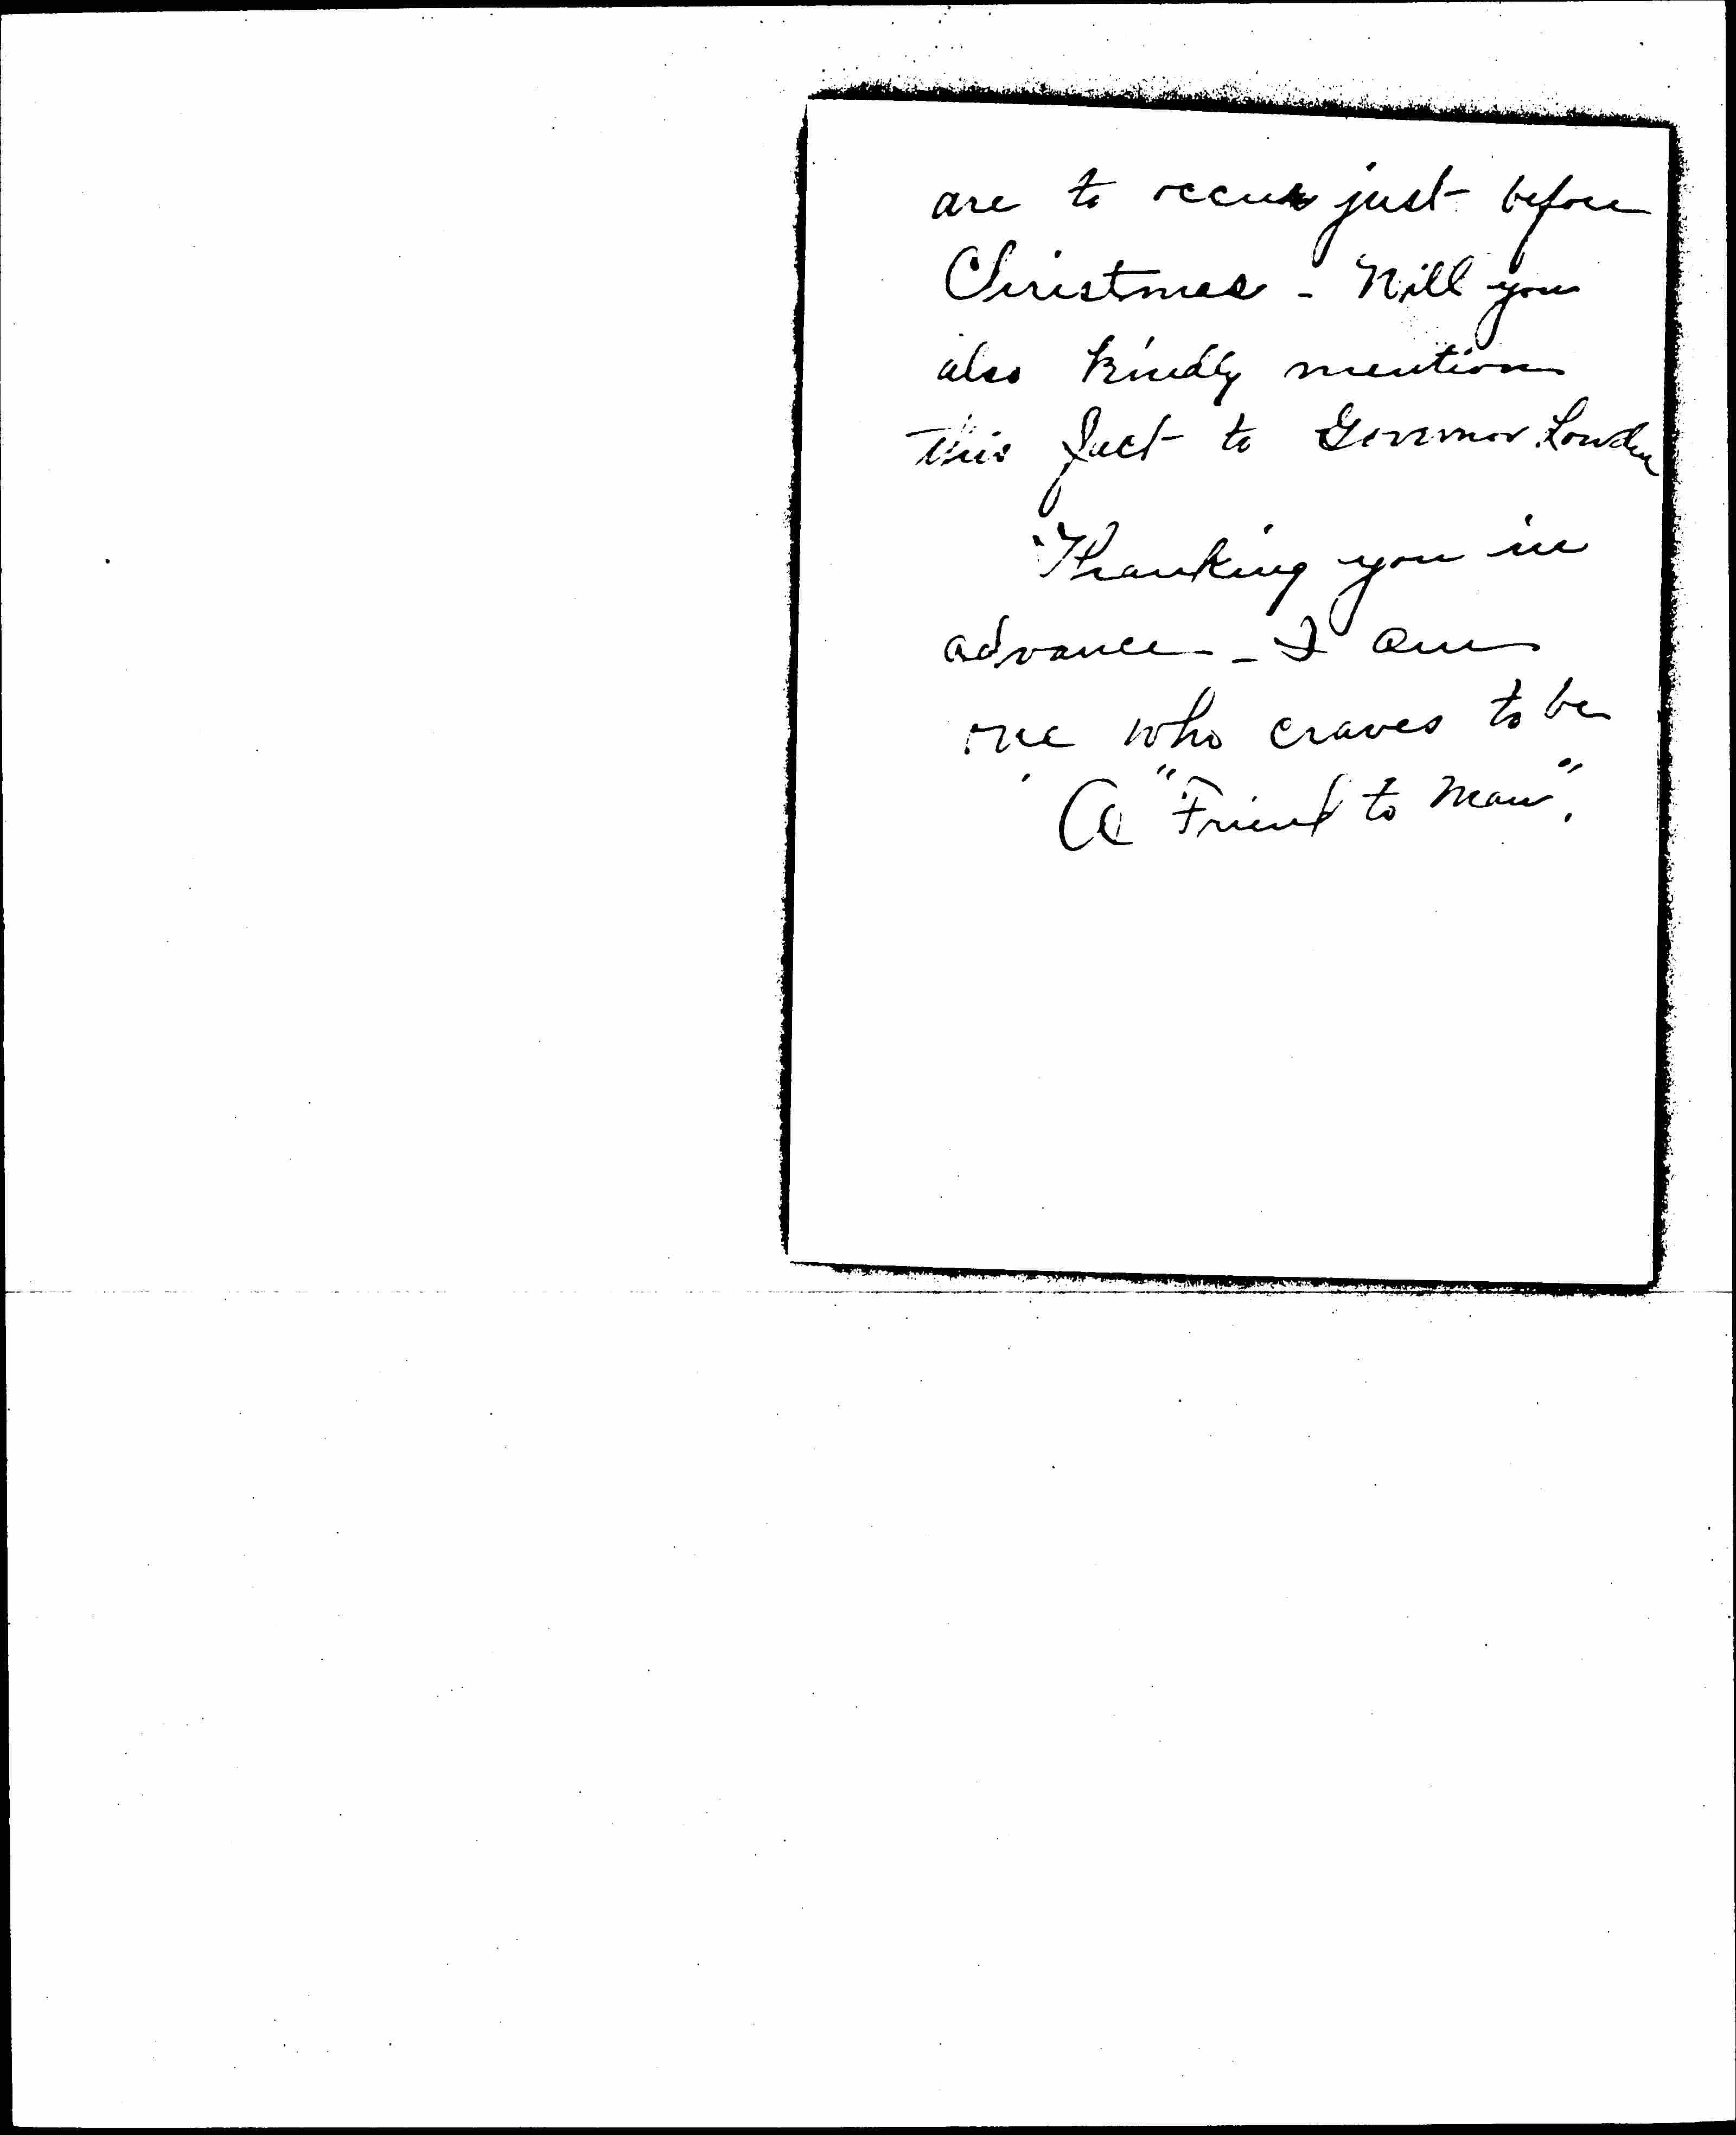 are to occur just before
Christmas - Will you
also kindly mention
this fact to Governor Lowden
Thanking you in
advance - I am
one who craves to be
A "Friend to Man".